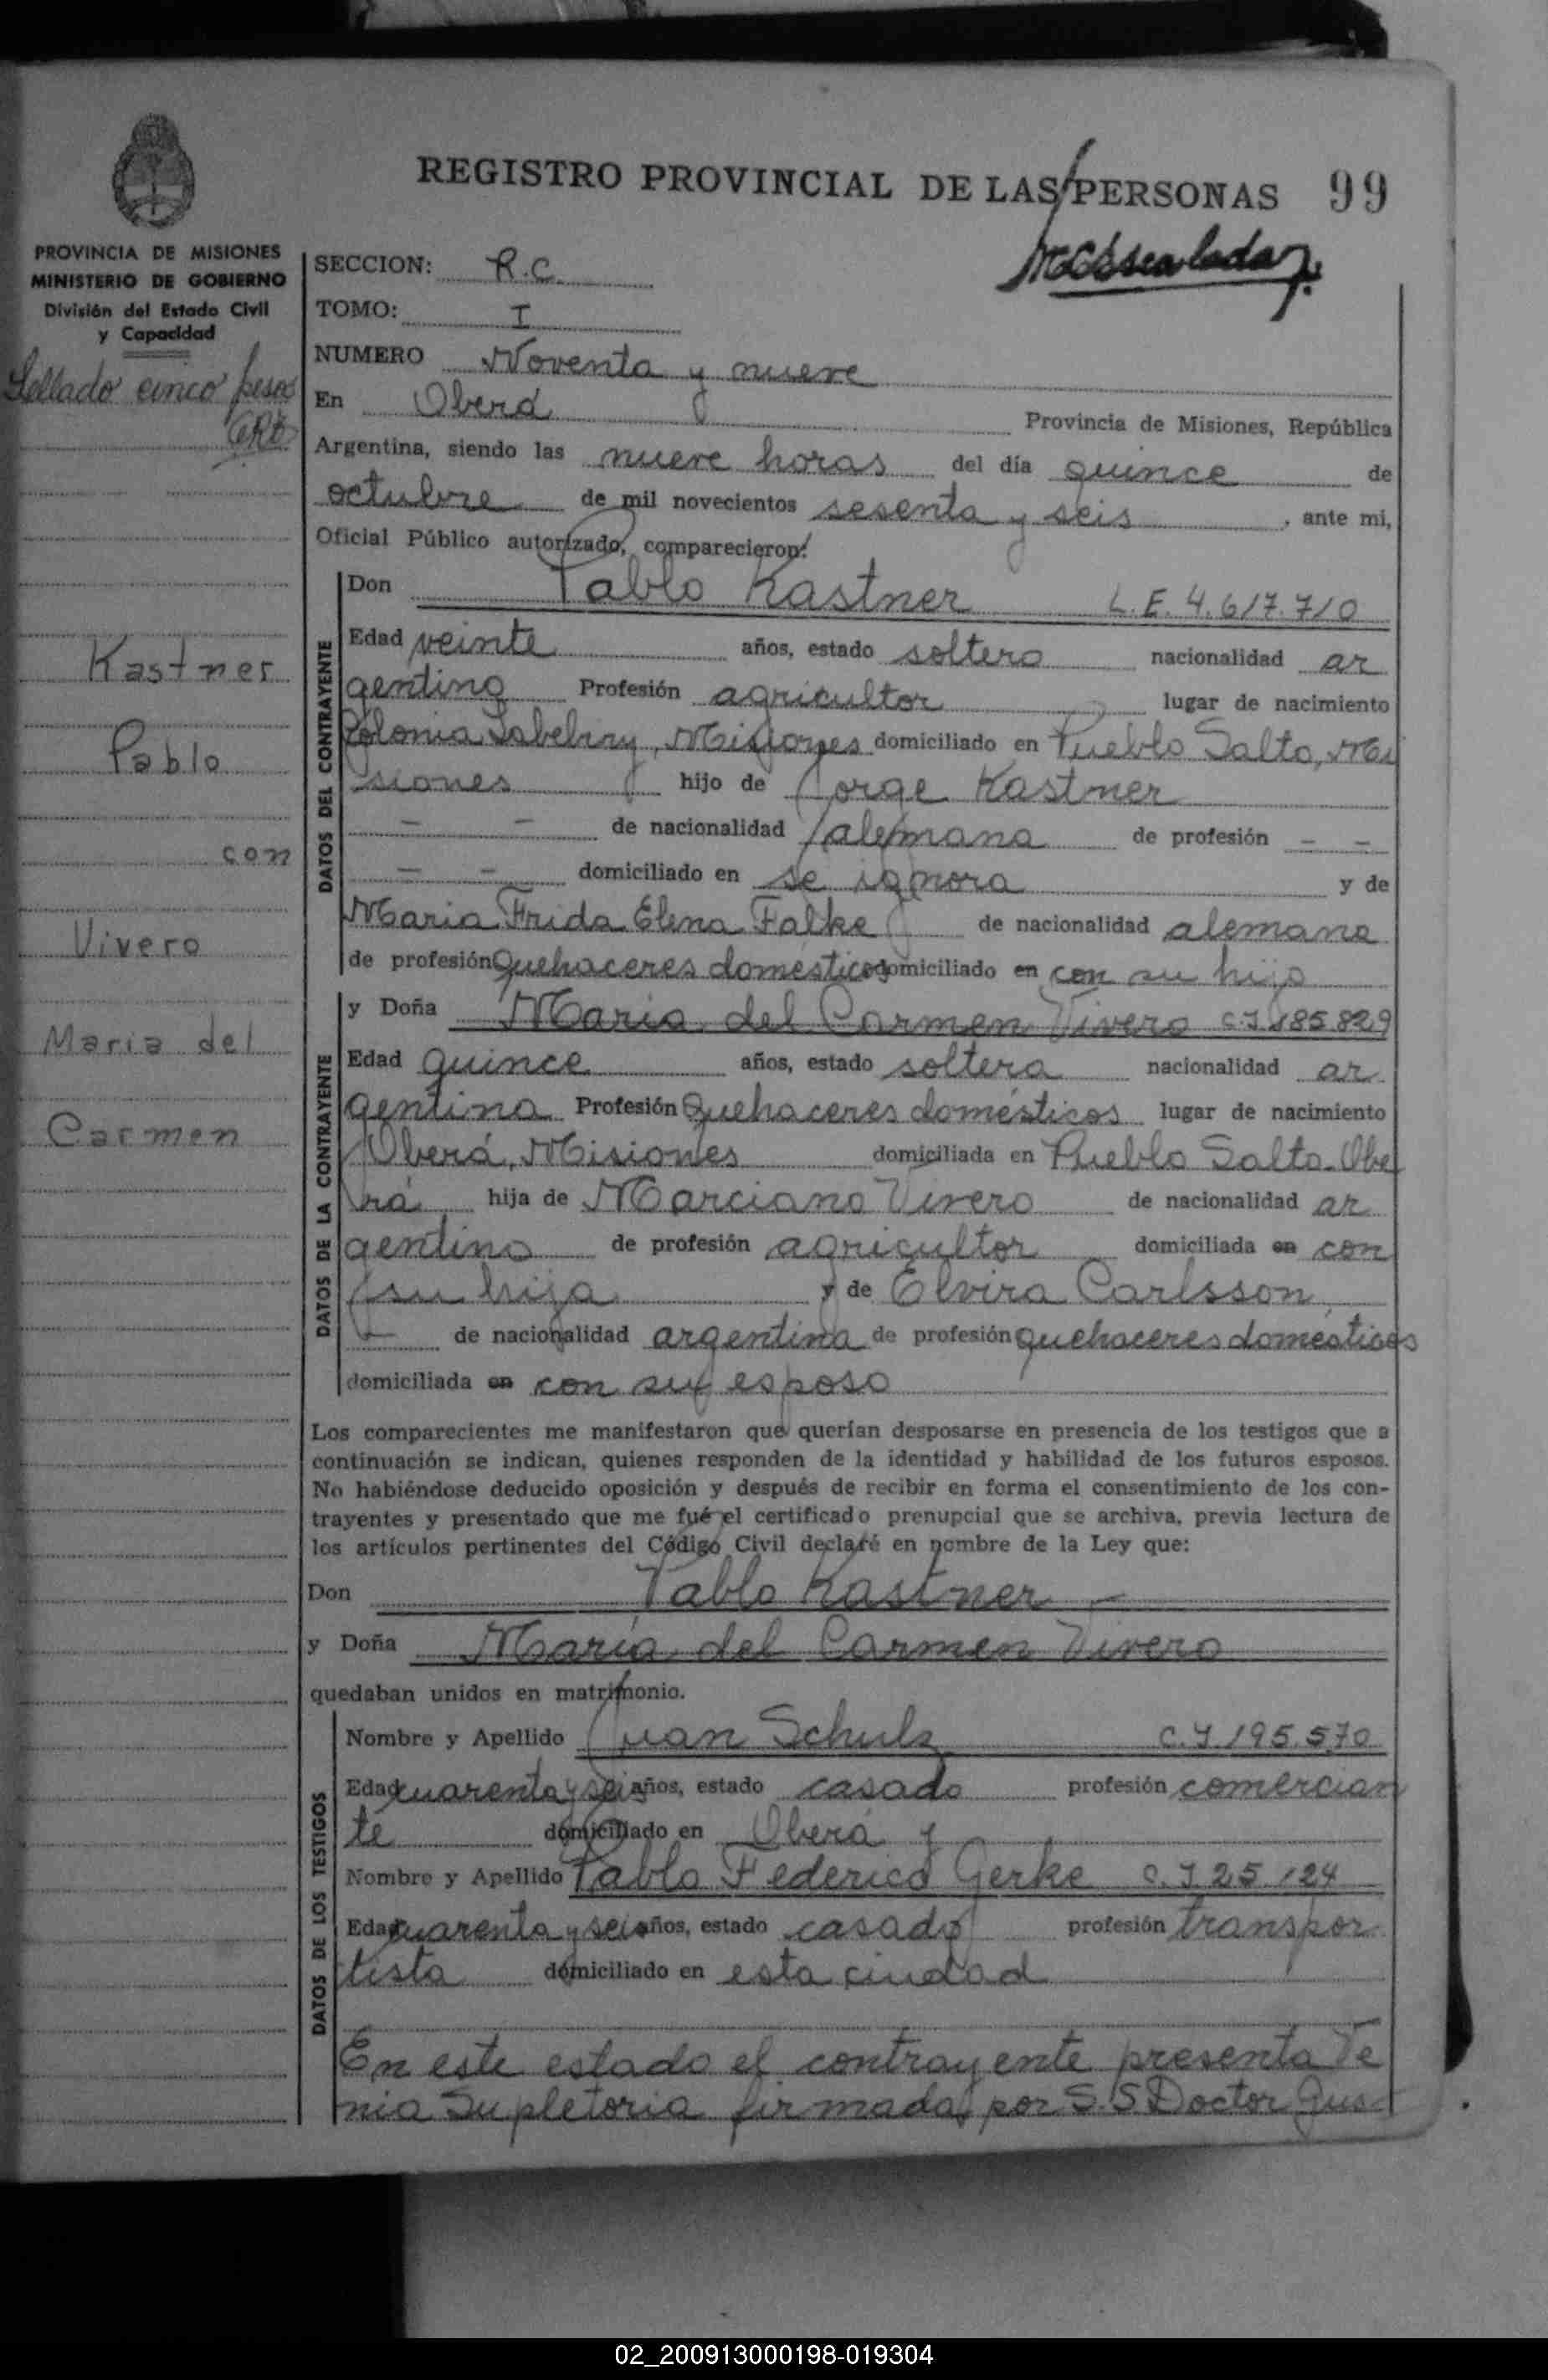 REGISTRO PROVINCIAL DE LAS PERSONAS 99
PROVINCIA DE MISIONES
MINISTERIO DE GOBIERNO
División del Estado Civil
y Capacidad
Sellado cinco pesos
Kastner
Pablo
con
Vivero
Maria del
Carmen
SECCION: R.C.
TOMO: I
NUMERO Noventa y nueve
En Oberá Provincia de Misiones, República
Argentina, siendo las nueve horas del día quince de
octubre de mil novecientos sesenta y seis, ante mi,
Oficial Público autorizado, comparecieron:
DATOS DEL CONTRAYENTE
Don Pablo Kastner L.E. 4.617.710
Edad veinte años, estado soltero nacionalidad ar
gentino Profesión agricultor lugar de nacimiento
Colonia Misiones domiciliado en Pueblo Salto, Mi
siones hijo de Jorge Kastner
- - de nacionalidad alemana de profesión - -
- - domiciliado en se ignora y de
Maria Frida Elena Falke de nacionalidad alemana
de profesión Quehaceres domésticos domiciliado en con su hijo
DATOS DE LA CONTRAYENTE
y Doña María del Carmen Vivero C.I 185.829
Edad quince años, estado soltera nacionalidad ar
gentina Profesión Quehaceres domésticos lugar de nacimiento
Oberá, Misiones domiciliada en Pueblo Salto-Obe
rá hija de Marciano Vivero de nacionalidad ar
gentino de profesión agricultor domiciliada en con
su hija y de Elvira Carlsson
- de nacionalidad argentina de profesión quehaceres domésticos
domiciliada en con su esposo
Los comparecientes me manifestaron que querían desposarse en presencia de los testigos que a
continuación se indican, quienes responden de la identidad y habilidad de los futuros esposos.
No habiéndose deducido oposición y después de recibir en forma el consentimiento de los con-
trayentes y presentado que me fué el certificado prenupcial que se archiva, previa lectura de
los artículos pertinentes del Código Civil declaré en nombre de la Ley que:
Don Pablo Kastner -
y Doña María del Carmen Vivero
quedaban unidos en matrimonio.
DATOS DE LOS TESTIGOS
Nombre y Apellido Juan Schulz C.I 195.570
Edad cuarenta y seis años, estado casado profesión comercian
te domiciliado en Oberá y
Nombre y Apellido Pablo Federico Gerke C.I 25.124
Edad cuarenta y seis años, estado casado profesión transpor
tista domiciliado en esta ciudad
En este estado el contrayente presenta Ve
nia Supletoria firmada por S.S Doctor Gus-
02_200913000198-019304